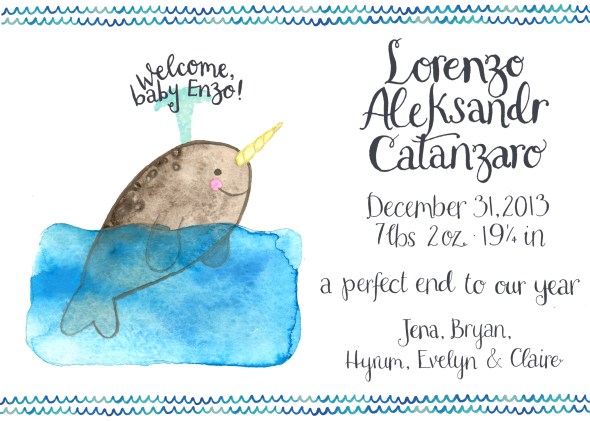 Welcome,
baby Enzo!
Lorenzo
Aleksandr
Catanzaro
December 31, 2013
7 lbs 2 oz. · 19¼ in
a perfect end to our year
Jena, Bryan,
Hyrum, Evelyn & Claire